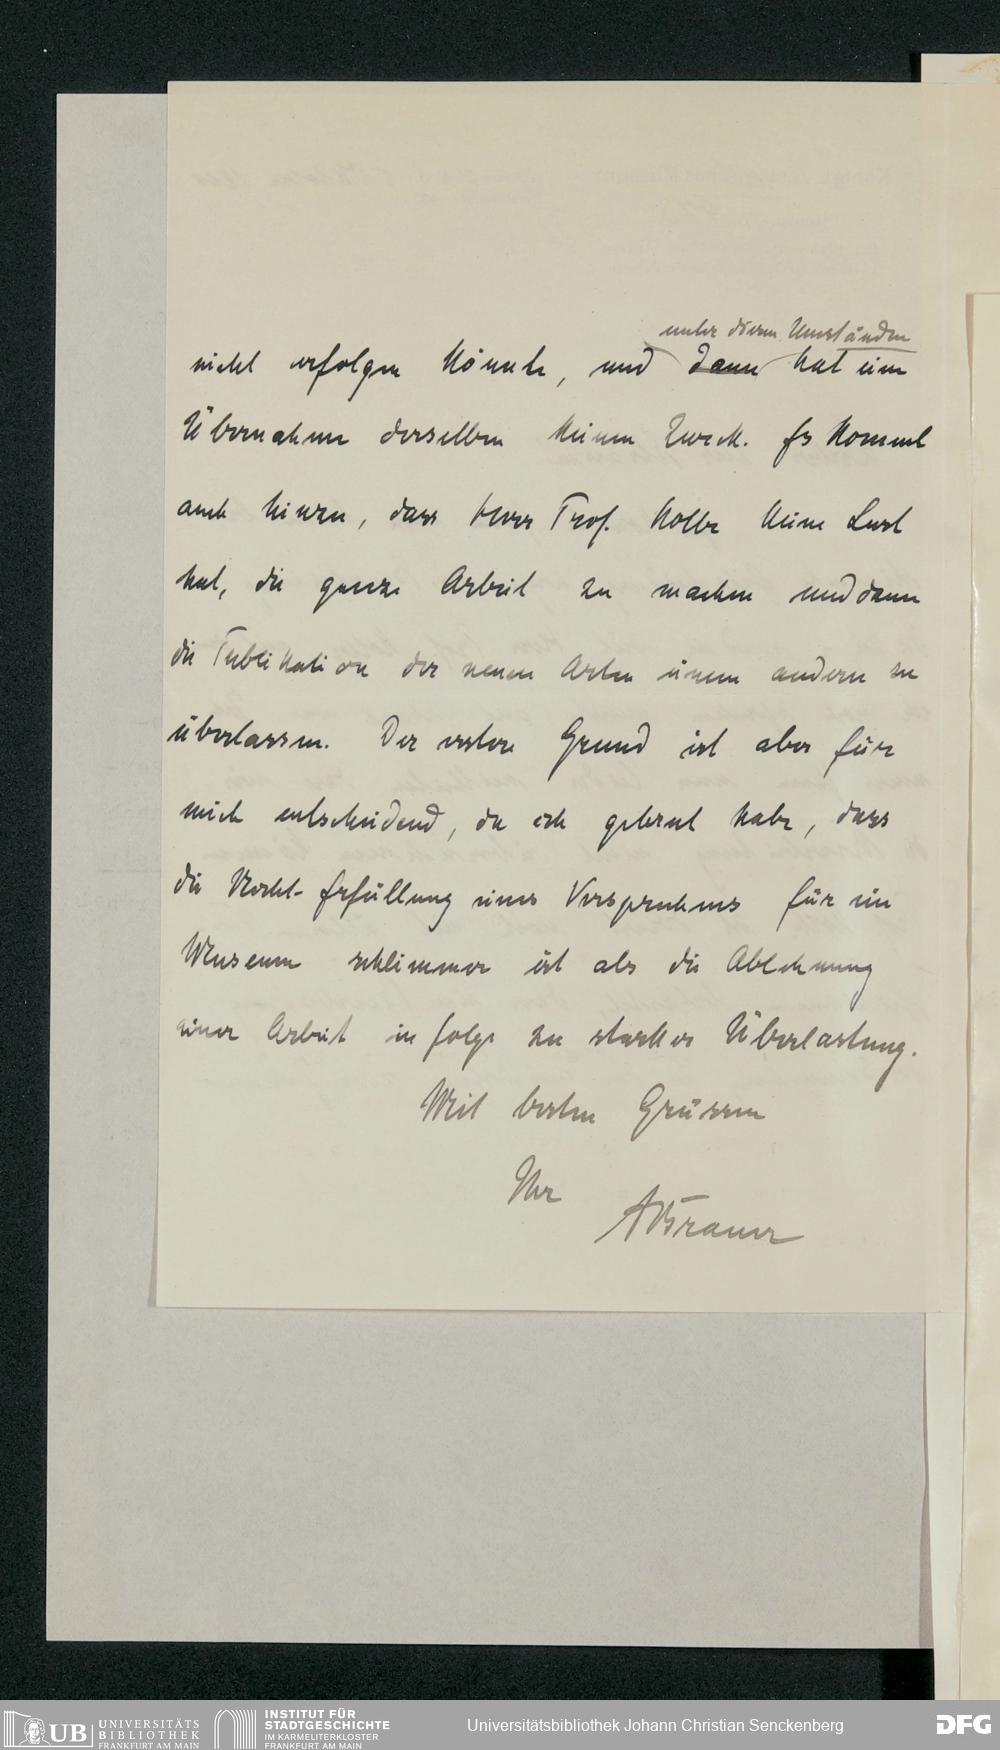 unter diesen Umständen
nicht erfolgen könnte, und dann hat eine
Übernahme derselben keinen Zweck. Es kommt
auch hinzu, dass Herr Prof. Kolbe keine Lust
hat, die ganze Arbeit zu machen und dann
die Publikation der neuen Arten einem andern zu
überlassen. Der erstere Grund ist aber für
mich entscheidend, da ich gelernt habe, dass
die Nicht-Erfüllung eines Versprechens für ein
Museum schlimmer ist als die Ablehnung
einer Arbeit in folge zu starker Überlastung.
Mit besten Grüssen
Ihr
ABrauer
UB UNIVERSITÄTS
BIBLIOTHEK
FRANKFURT AM MAIN
INSTITUT FÜR
STADTGESCHICHTE
IM KARMELITERKLOSTER
FRANKFURT AM MAIN
Universitätsbibliothek Johann Christian Senckenberg
DFG